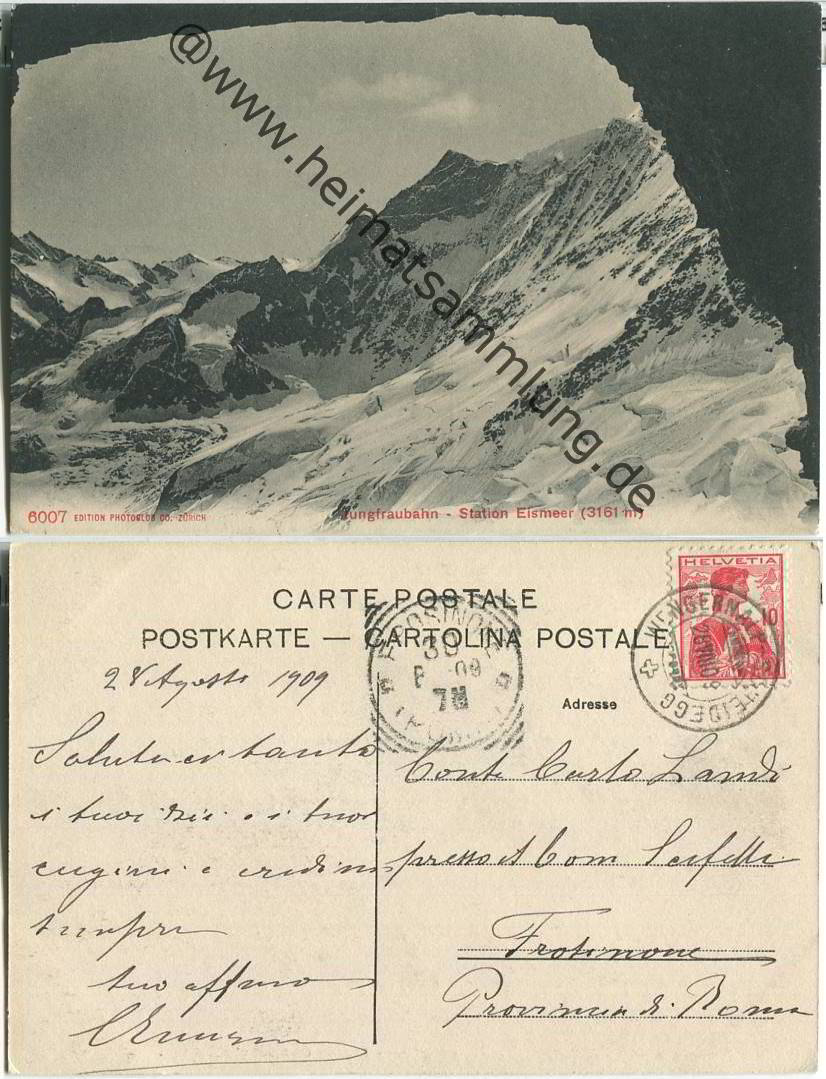 @www.heimatsammlung.de
6007 EDITION PHOTOGLOB CO. ZÜRICH
Jungfraubahn - Station Eismeer (3161 m)
HELVETIA
10
CARTE POSTALE
POSTKARTE — CARTOLINA POSTALE
WENGERNALP SCHEIDEGG
FROSINONE
30
8 09
7M
28 Agosto 1909
Adresse
Salutaci tanto
i tuoi zii e i tuoi
cugini e credimi
sempre
tuo affmo
Conte Carlo Landi
presso il Com
Frosinone
Provincia di Roma